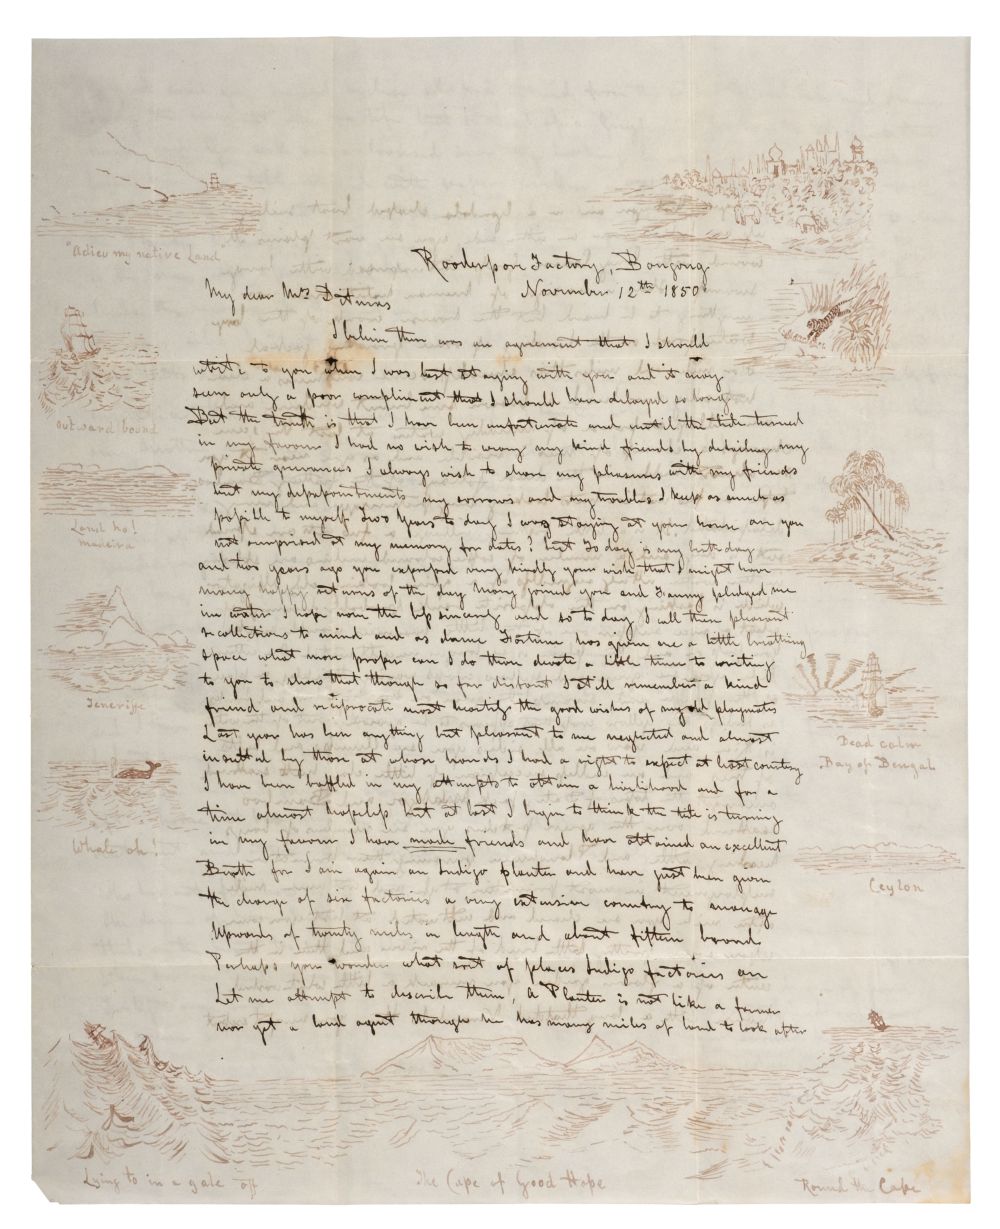 "Adieu my native Land
outward bound
Land ho!
madeira
Teneriffe
Whale oh!
Lying to in a gale off
The Cape of Good Hope
Round the Cape
Ceylon
Dead calm
Bay of Bengal
Rooderpore Factory, Bongong
November 12th 1850
My dear Mrs
I believe there was an agreement that I should
write to you when I was last staying with you and it may
seem only a poor compliment that I should have delayed so long
But the truth is that I have been unfortunate and until the tide turned
in my favour I had no wish to worry my kind friends by detailing my
private grievances I always wish to share my pleasures with my friends
but my disappointments my sorrows and my troubles I keep as much as
possible to myself Two Years to day I was staying at your house are you
not surprised at my memory for dates? but To day is my birthday
and two years ago you expressed very kindly your wish that I might have
many happy returns of the day Mary joined you and Fanny pledged me
in water I hope none the less sincerely and so to day I call these pleasant
recollections to mind and as dame Fortune has given me a little breathing
space what more proper can I do then devote a little time to writing
to you to show that though so far distant I still remember a kind
friend and reciprocate most heartily the good wishes of my old playmates
Last year has been anything but pleasant to me neglected and almost
insulted by those at whose hands I had a right to expect at least courtesy
I have been baffled in my attempts to obtain a livelihood and for a
time almost hopeless but at last I begin to think the tide is turning
in my favour I have made friends and have obtained an excellent
Birth for I am again an Indigo planter and have just been given
the charge of six factories a very extensive country to manage
Upwards of twenty miles in length and about fifteen broad
Perhaps you wonder what sort of places Indigo factories are
Let me attempt to describe them, A Planter is not like a farmer
nor yet a land agent though he has many miles of land to look after